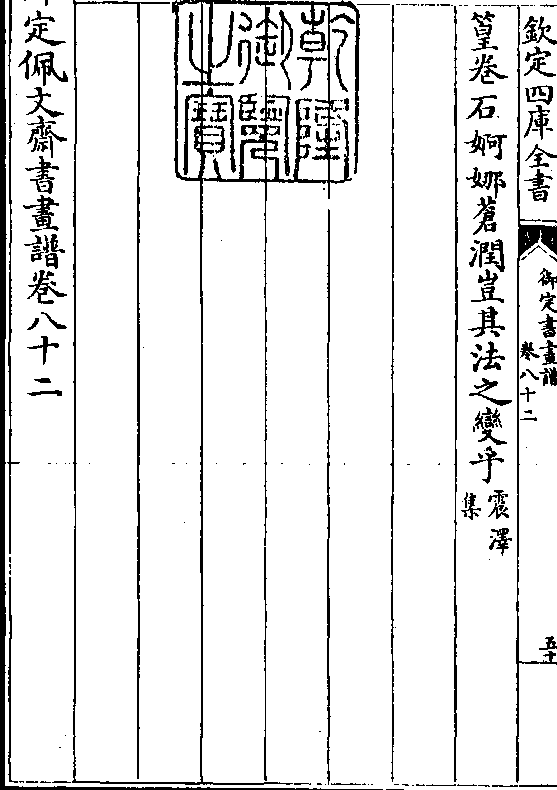 欽定四庫全書
御定書畫譜
卷八十二
五十
篁卷石婀娜蒼潤豈其法之變乎震澤
集
乾隆
御覽
之寶
定佩文齋書畫譜卷八十二